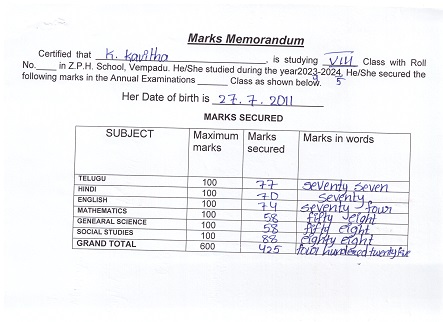 Marks Memorandum
Certified that K. Kavitha, is studying VIII Class with Roll
No.____ in Z.P.H. School, Vempadu. He/She studied during the year2023-2024. He/She secured the
following marks in the Annual Examinations ______ Class as shown below.
Her Date of birth is 27.7.2011
MARKS SECURED
SUBJECT Maximum marks Marks secured Marks in words
TELUGU 100 77 seventy seven
HINDI 100 70 seventy
ENGLISH 100 74 seventy four
MATHEMATICS 100 58 fifty eight
GENEARAL SCIENCE 100 58 fifty eight
SOCIAL STUDIES 100 88 eighty eight
GRAND TOTAL 600 425 four hundered twenty five